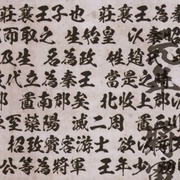 莊襄王子也 莊襄王為秦
而取之 生始皇 以秦昭
及生 名為政 姓趙氏
代立為秦王 當是之時
置南郡矣 北收上郡
至滎陽 滅二周 置三
招致賓客游士 欲以
公等為將軍 王年少